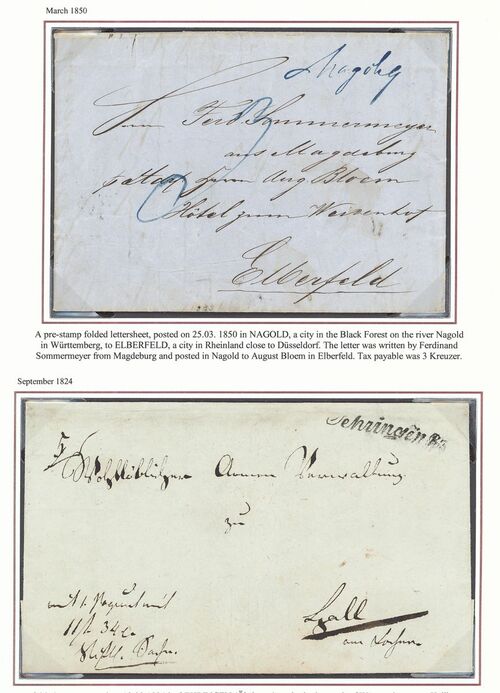 March 1850
Nagold
Herrn Ferd Sommermeyer
aus Magdeburg
Herrn Aug Bloem
Hôtel zum Weidenhof
Elberfeld
A pre-stamp folded lettersheet, posted on 25.03. 1850 in NAGOLD, a city in the Black Forest on the river Nagold
in Württemberg, to ELBERFELD, a city in Rheinland close to Düsseldorf. The letter was written by Ferdinand
Sommermeyer from Magdeburg and posted in Nagold to August Bloem in Elberfeld. Tax payable was 3 Kreuzer.
September 1824
Oehringen
Wohllöblicher Armen Verwaltung
zu
Hall
am Kocher